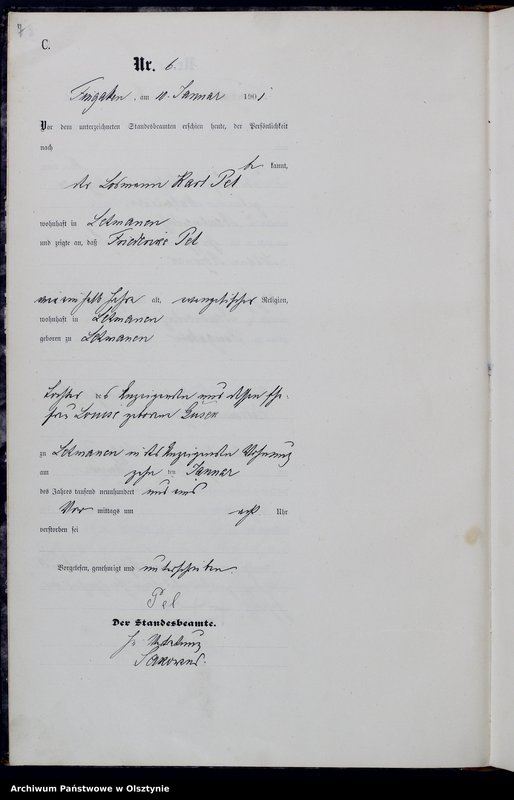 C.
Nr. 6.
am 10. Januar 1901
Vor dem unterzeichneten Standesbeamten erschien heute, der Persönlichkeit
nach
be kannt,
der Losmann Karl Pel
wohnhaft in Lehmanen
und zeigte an, daß Friederike Pel
alt, evangelischer Religion,
wohnhaft in Lehmanen
geboren zu Lehmanen
Tochter des Anzeigenden und dessen Ehe-
frau Louise geborene
zu Lehmanen in des Anzeigenden Wohnung
am zehn ten Januar
des Jahres tausend neunhundert und eins
Vor mittags um acht Uhr
verstorben sei
Vorgelesen, genehmigt und unterschrieben.
Pel
Der Standesbeamte.
In Vertretung
Archiwum Państwowe w Olsztynie